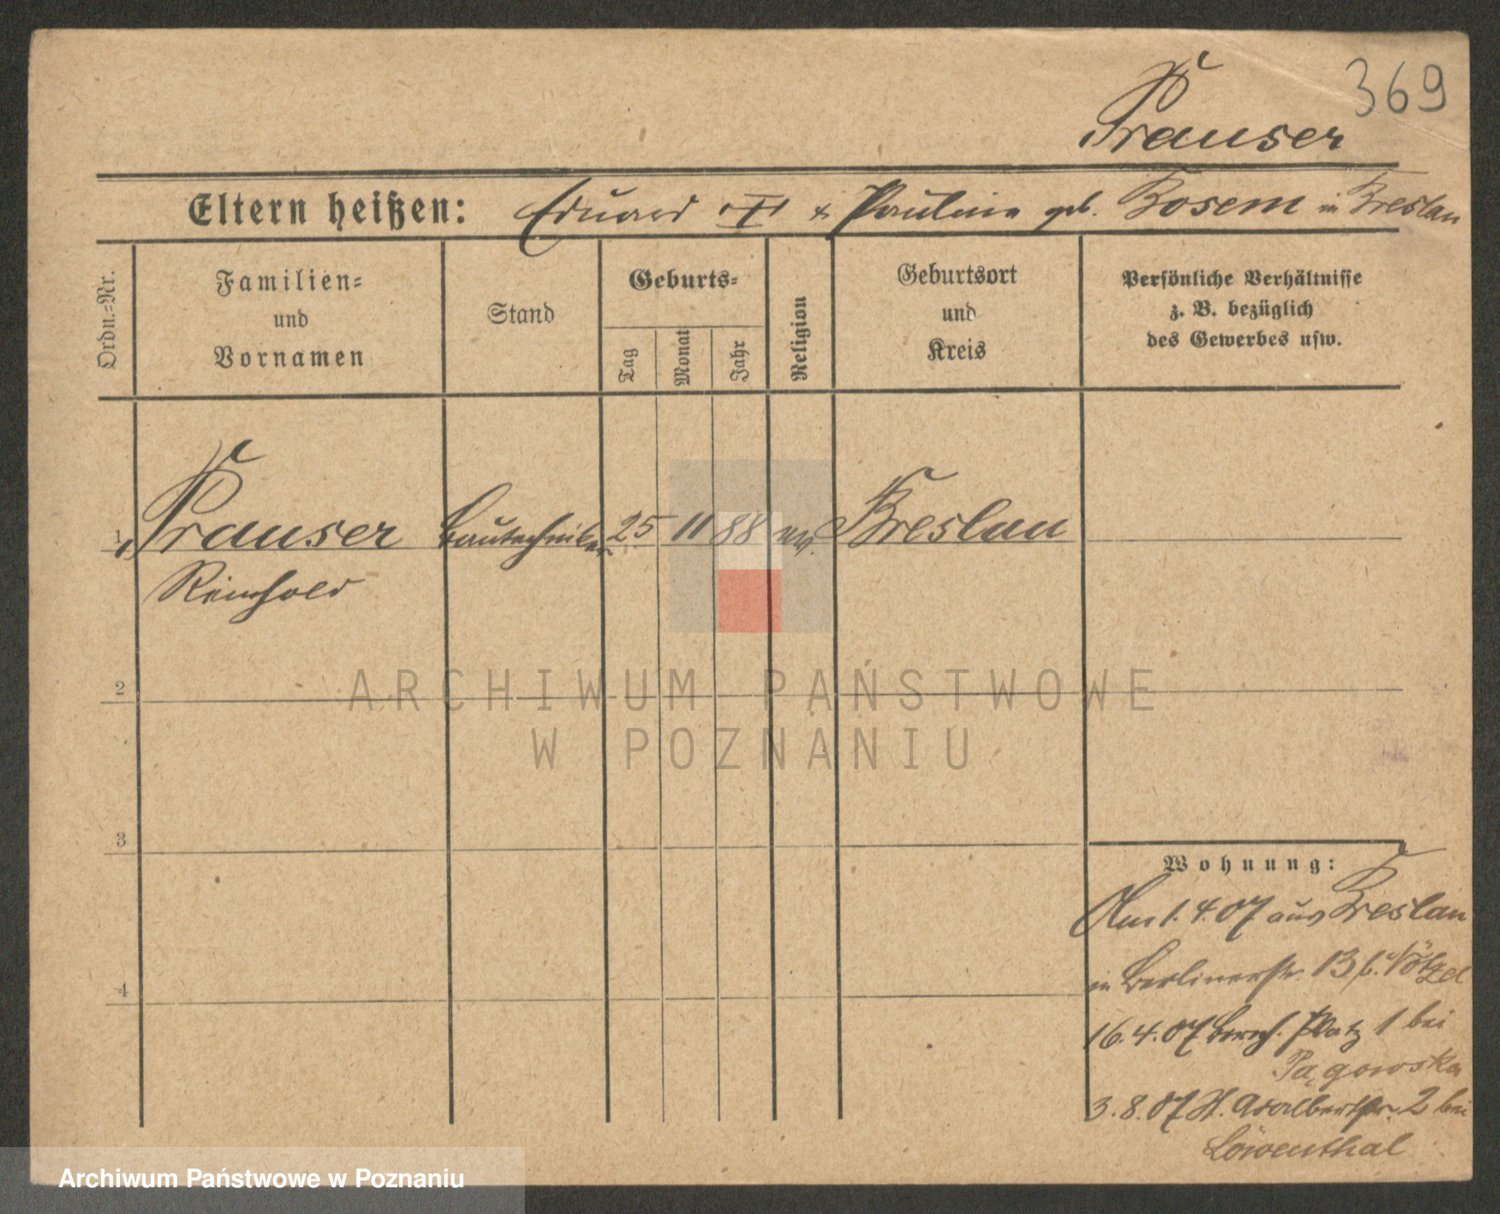 369
Prauser
Eltern heißen: Eduard & Pauline geb. Bosem in Breslau
Ordn.-Nr.
Familien- und Vornamen
Stand
Geburts-
Tag
Monat
Jahr
Religion
Geburtsort und Kreis
Persönliche Verhältnisse
z. B. bezüglich
des Gewerbes usw.
1 Prauser Bautechniker 25 11 88 ev. Breslau
Reinhold
2
ARCHIWUM PAŃSTWOWE
W POZNANIU
3
4
Wohnung:
Am 1.4.07 aus Breslau
in Berlinerstr. 13 b. Nötzel
16.4.07 Bernh. Platz 1 bei
Pągowska
3.8.07 St. Adalbertstr. 2 bei
Löwenthal
Archiwum Państwowe w Poznaniu